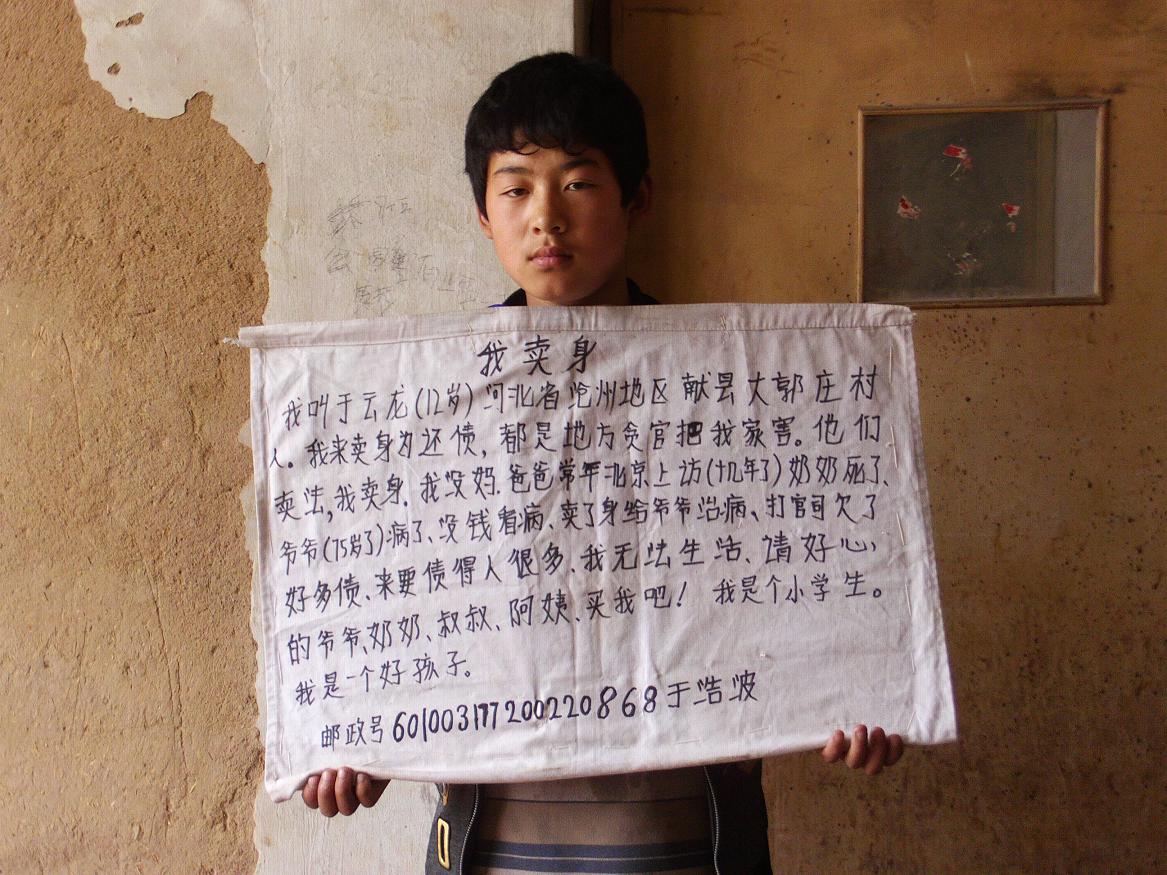 我卖身
我叫于云龙(12岁)河北省沧州地区献县大郭庄村
人。我来卖身为还债,都是地方贪官把我家害。他们
卖法,我卖身.我没妈.爸爸常年北京上访(十几年了)奶奶死了、
爷爷(75岁了)病了、没钱看病、卖了身给爷爷治病、打官司欠了
好多债、来要债得人很多、我无法生活、请好心
的爷爷、奶奶、叔叔、阿姨、买我吧! 我是个小学生。
我是一个好孩子。
邮政号601003177200220868于浩波